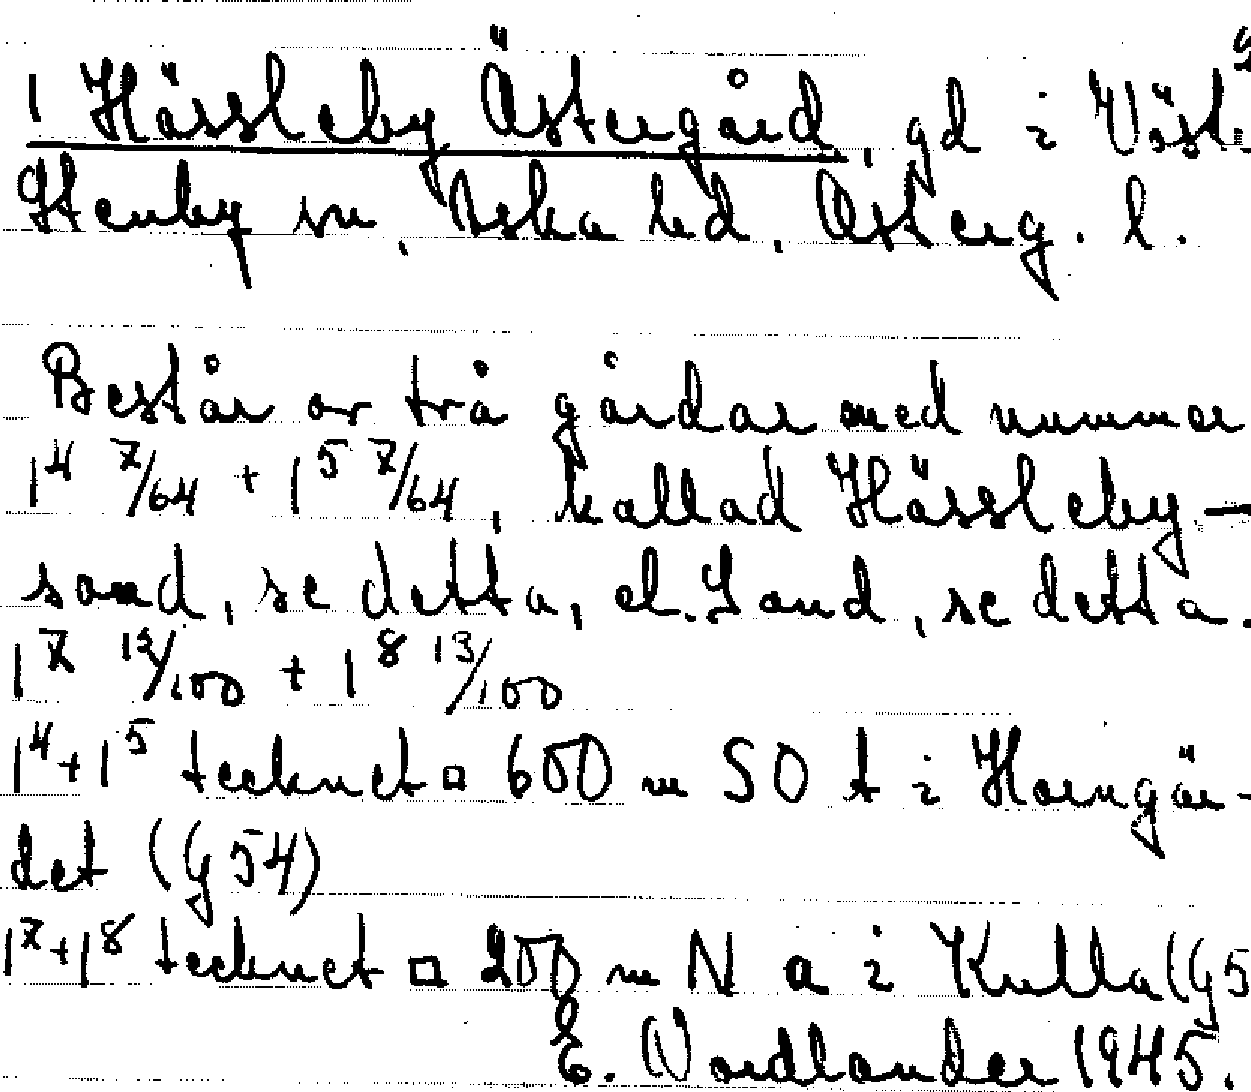 1 Hässleby Östergård, gd i Väst.
Stenby sn, Aska hd, Österg. l.
Består av två gårdar med nummer
1⁴ 7/64 + 1⁵ 7/64, kallad Hässleby-
sand, se detta, el. Sand, se detta.
1⁷ 13/100 + 1⁸ 13/100
1⁴+1⁵ tecknet □ 600 m SO t i Horngär-
det (G54)
1⁷+1⁸ tecknet □ 200 m N a i Kulla (G5
E. Nordlander 1945.